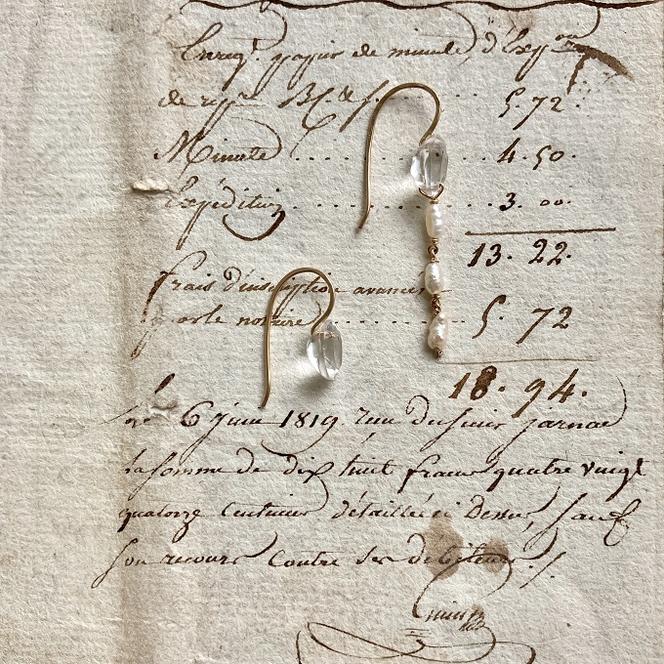 Enreg.t papier de minute, d'Exp.on
de 5. 72.
Minute ........ 4. 50.
Expédition ........ 3. 00.
13. 22.
frais d'inscription avancés
par le notaire ........ 5. 72
18. 94.
6 Juin 1819. du sieur jarnac
la somme de dix huit francs quatre vingt
quatorze Centimes détaillée ci Dessus, sauf
son recours Contre ses débiteurs ./.